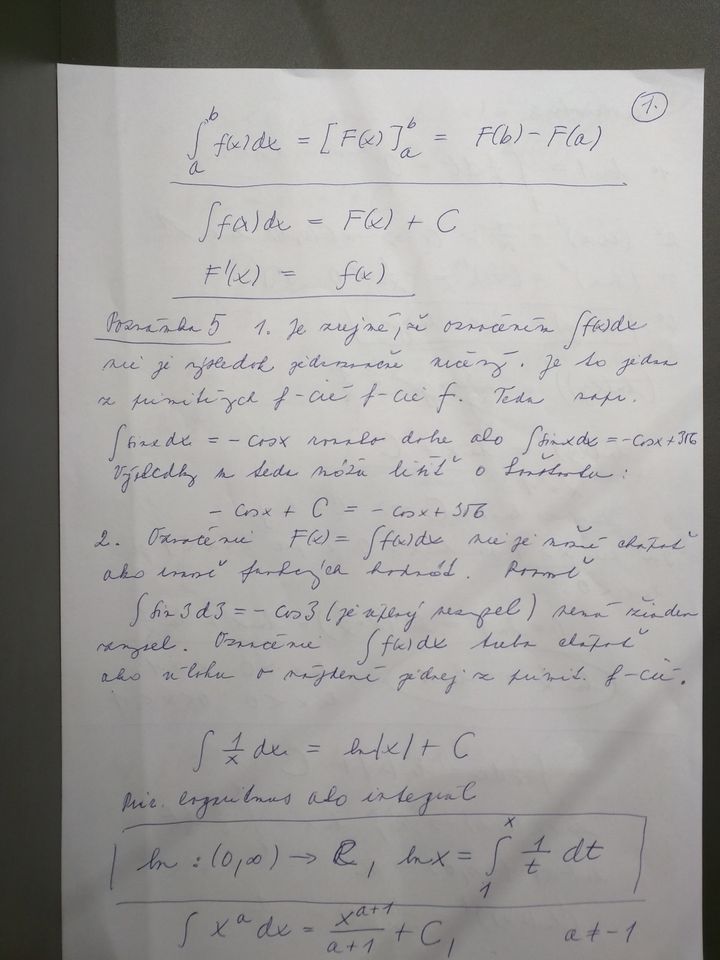 1.
∫_a^b f(x)dx = [F(x)]_a^b = F(b) - F(a)
∫f(x)dx = F(x) + C
F'(x) = f(x)
Poznámka 5 1. Je zrejmé, že označením ∫f(x)dx
nie je výsledok jednoznačne určený. Je to jedna
z primitívnych f-cií f-cie f. Teda napr.
∫sinx dx = -cosx rovnako dobre ako ∫sinx dx = -cosx+
Výsledky sa teda môžu líšiť o konštantu:
-cosx + C = -cosx+
2. Označenie F(x) = ∫f(x)dx nie je možné chápať
ako rovnosť funkčných hodnôt. Rovnosť
∫sin3d3 = -cos3 (je úplný nezmysel) nemá žiaden
zmysel. Označenie ∫f(x)dx treba chápať
ako úlohu o nájdení jednej z primit. f-cií.
∫ 1/x dx = ln|x| + C
logaritmus ako integrál
ln : (0,∞) → R, lnx = ∫_1^x 1/t dt
∫ x^a dx = x^(a+1)/(a+1) + C, a ≠ -1